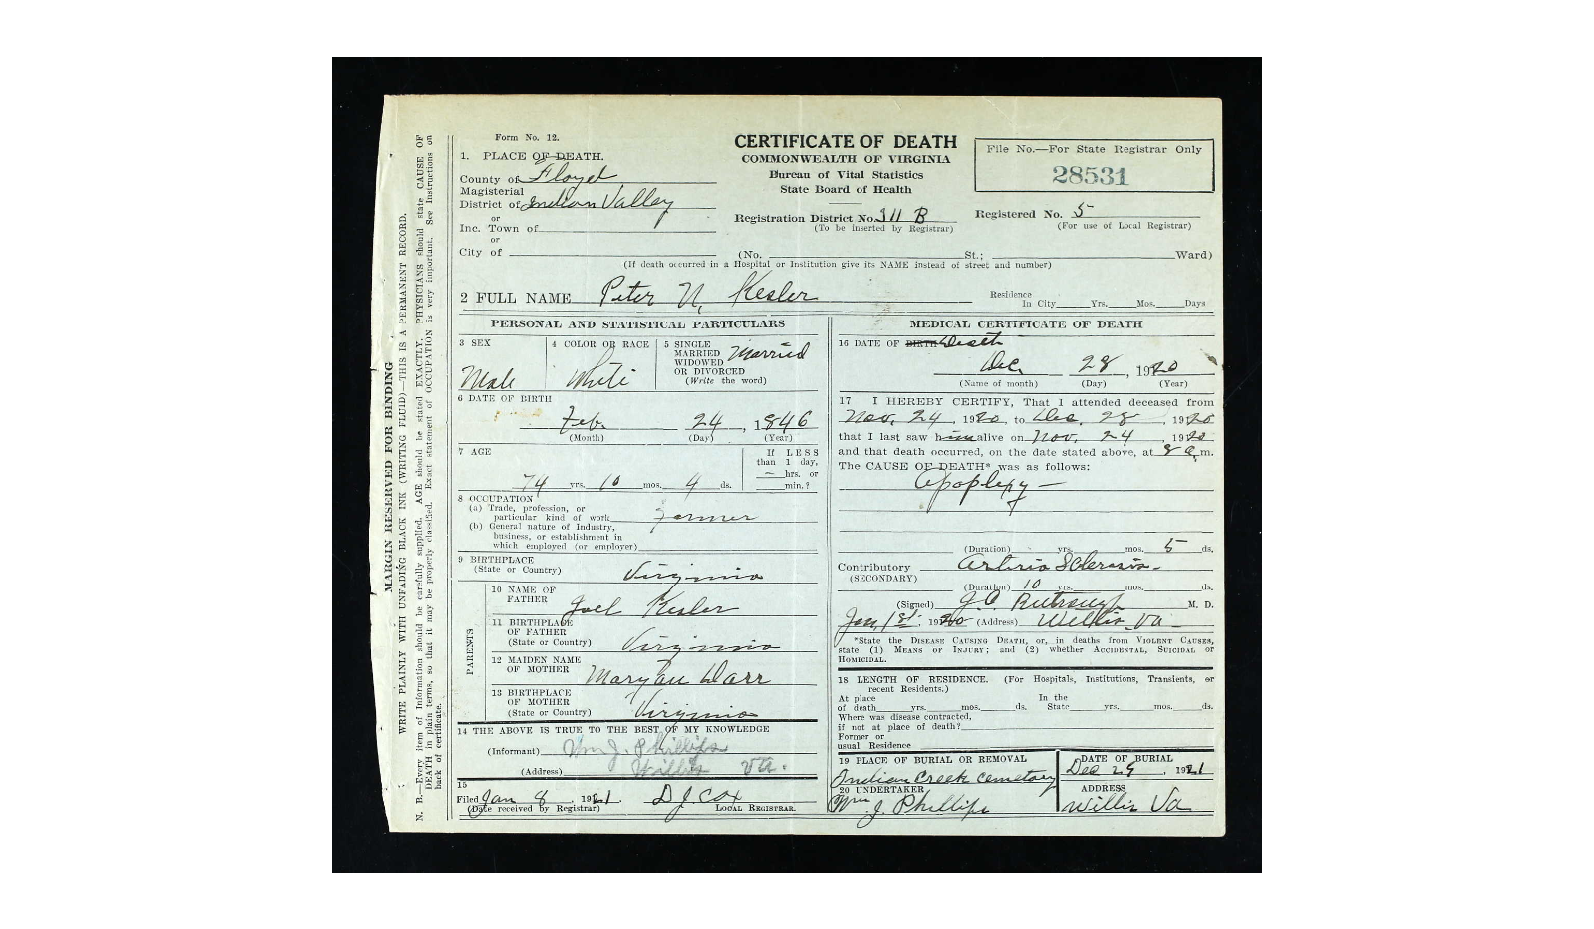 MARGIN RESERVED FOR BINDING
WRITE PLAINLY WITH UNFADING BLACK INK (WRITING FLUID)—THIS IS A PERMANENT RECORD.
N. B.—Every item of Information should be carefully supplied. AGE should be stated EXACTLY. PHYSICIANS should state CAUSE OF
DEATH in plain terms, so that it may be properly classified. Exact statement of OCCUPATION is very important. See Instructions on
back of certificate.
Form No. 12.
1. PLACE OF DEATH.
County of Floyd
Magisterial
District of Indian Valley
or
Inc. Town of
or
City of
CERTIFICATE OF DEATH
COMMONWEALTH OF VIRGINIA
Bureau of Vital Statistics
State Board of Health
Registration District No. 311 B
(To be inserted by Registrar)
File No.—For State Registrar Only
28531
Registered No. 5
(For use of Local Registrar)
(No. St.; Ward)
(If death occurred in a Hospital or Institution give its NAME instead of street and number)
2 FULL NAME Peter N. Kesler
Residence
In City Yrs. Mos. Days
PERSONAL AND STATISTICAL PARTICULARS
3 SEX
Male
4 COLOR OR RACE
White
5 SINGLE
MARRIED
WIDOWED
OR DIVORCED
(Write the word)
Married
6 DATE OF BIRTH
Feb. 24, 1846
(Month) (Day) (Year)
7 AGE
74 yrs. 10 mos. 4 ds.
If LESS
than 1 day,
— hrs. or
min.?
8 OCCUPATION
(a) Trade, profession, or
particular kind of work Farmer
(b) General nature of Industry,
business, or establishment in
which employed (or employer)
9 BIRTHPLACE
(State or Country) Virginia
PARENTS
10 NAME OF
FATHER Joel Kesler
11 BIRTHPLACE
OF FATHER
(State or Country) Virginia
12 MAIDEN NAME
OF MOTHER Mary an Warr
13 BIRTHPLACE
OF MOTHER
(State or Country) Virginia
14 THE ABOVE IS TRUE TO THE BEST OF MY KNOWLEDGE
(Informant) Wm J. Phillips
(Address) Willis Va.
15
Filed Jan 8, 1921. D J Cox
(Date received by Registrar) LOCAL REGISTRAR.
MEDICAL CERTIFICATE OF DEATH
16 DATE OF BIRTH Death
Dec. 28, 1920
(Name of month) (Day) (Year)
17 I HEREBY CERTIFY, That I attended deceased from
Nov. 24, 1920, to Dec. 28, 1920
that I last saw him alive on Nov. 24, 1920
and that death occurred, on the date stated above, at 8 a. m.
The CAUSE OF DEATH* was as follows:
Apoplepy —
(Duration) yrs. mos. 5 ds.
Contributory Arterio Sclerosis-
(SECONDARY)
(Duration) 10 yrs. mos. ds.
(Signed) J.O. Rutrough M. D.
Jan, 1st. 19 (Address) Willis Va -
*State the DISEASE CAUSING DEATH, or, in deaths from VIOLENT CAUSES,
state (1) MEANS OF INJURY; and (2) whether ACCIDENTAL, SUICIDAL or
HOMICIDAL.
18 LENGTH OF RESIDENCE. (For Hospitals, Institutions, Transients, or
recent Residents.)
At place In the
of death yrs. mos. ds. State yrs. mos. ds.
Where was disease contracted,
if not at place of death?
Former or
usual Residence
19 PLACE OF BURIAL OR REMOVAL
Indian Creek cemetery
DATE OF BURIAL
Dec 29, 1921
20 UNDERTAKER
Wm J. Phillips
ADDRESS
Willis Va